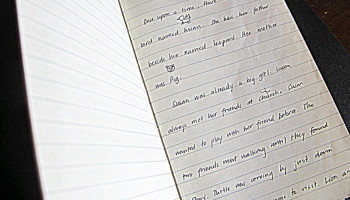 Once upon a time, there
bird named Susan. She has her father
beside her named leopard her mother
was Pig.
Susan was already a big girl. Susan
always met her friends at church. Susan
wanted to play with her friend before. The
two friends went walking until they found
Turtle was coming by just down
came to visit. Lion